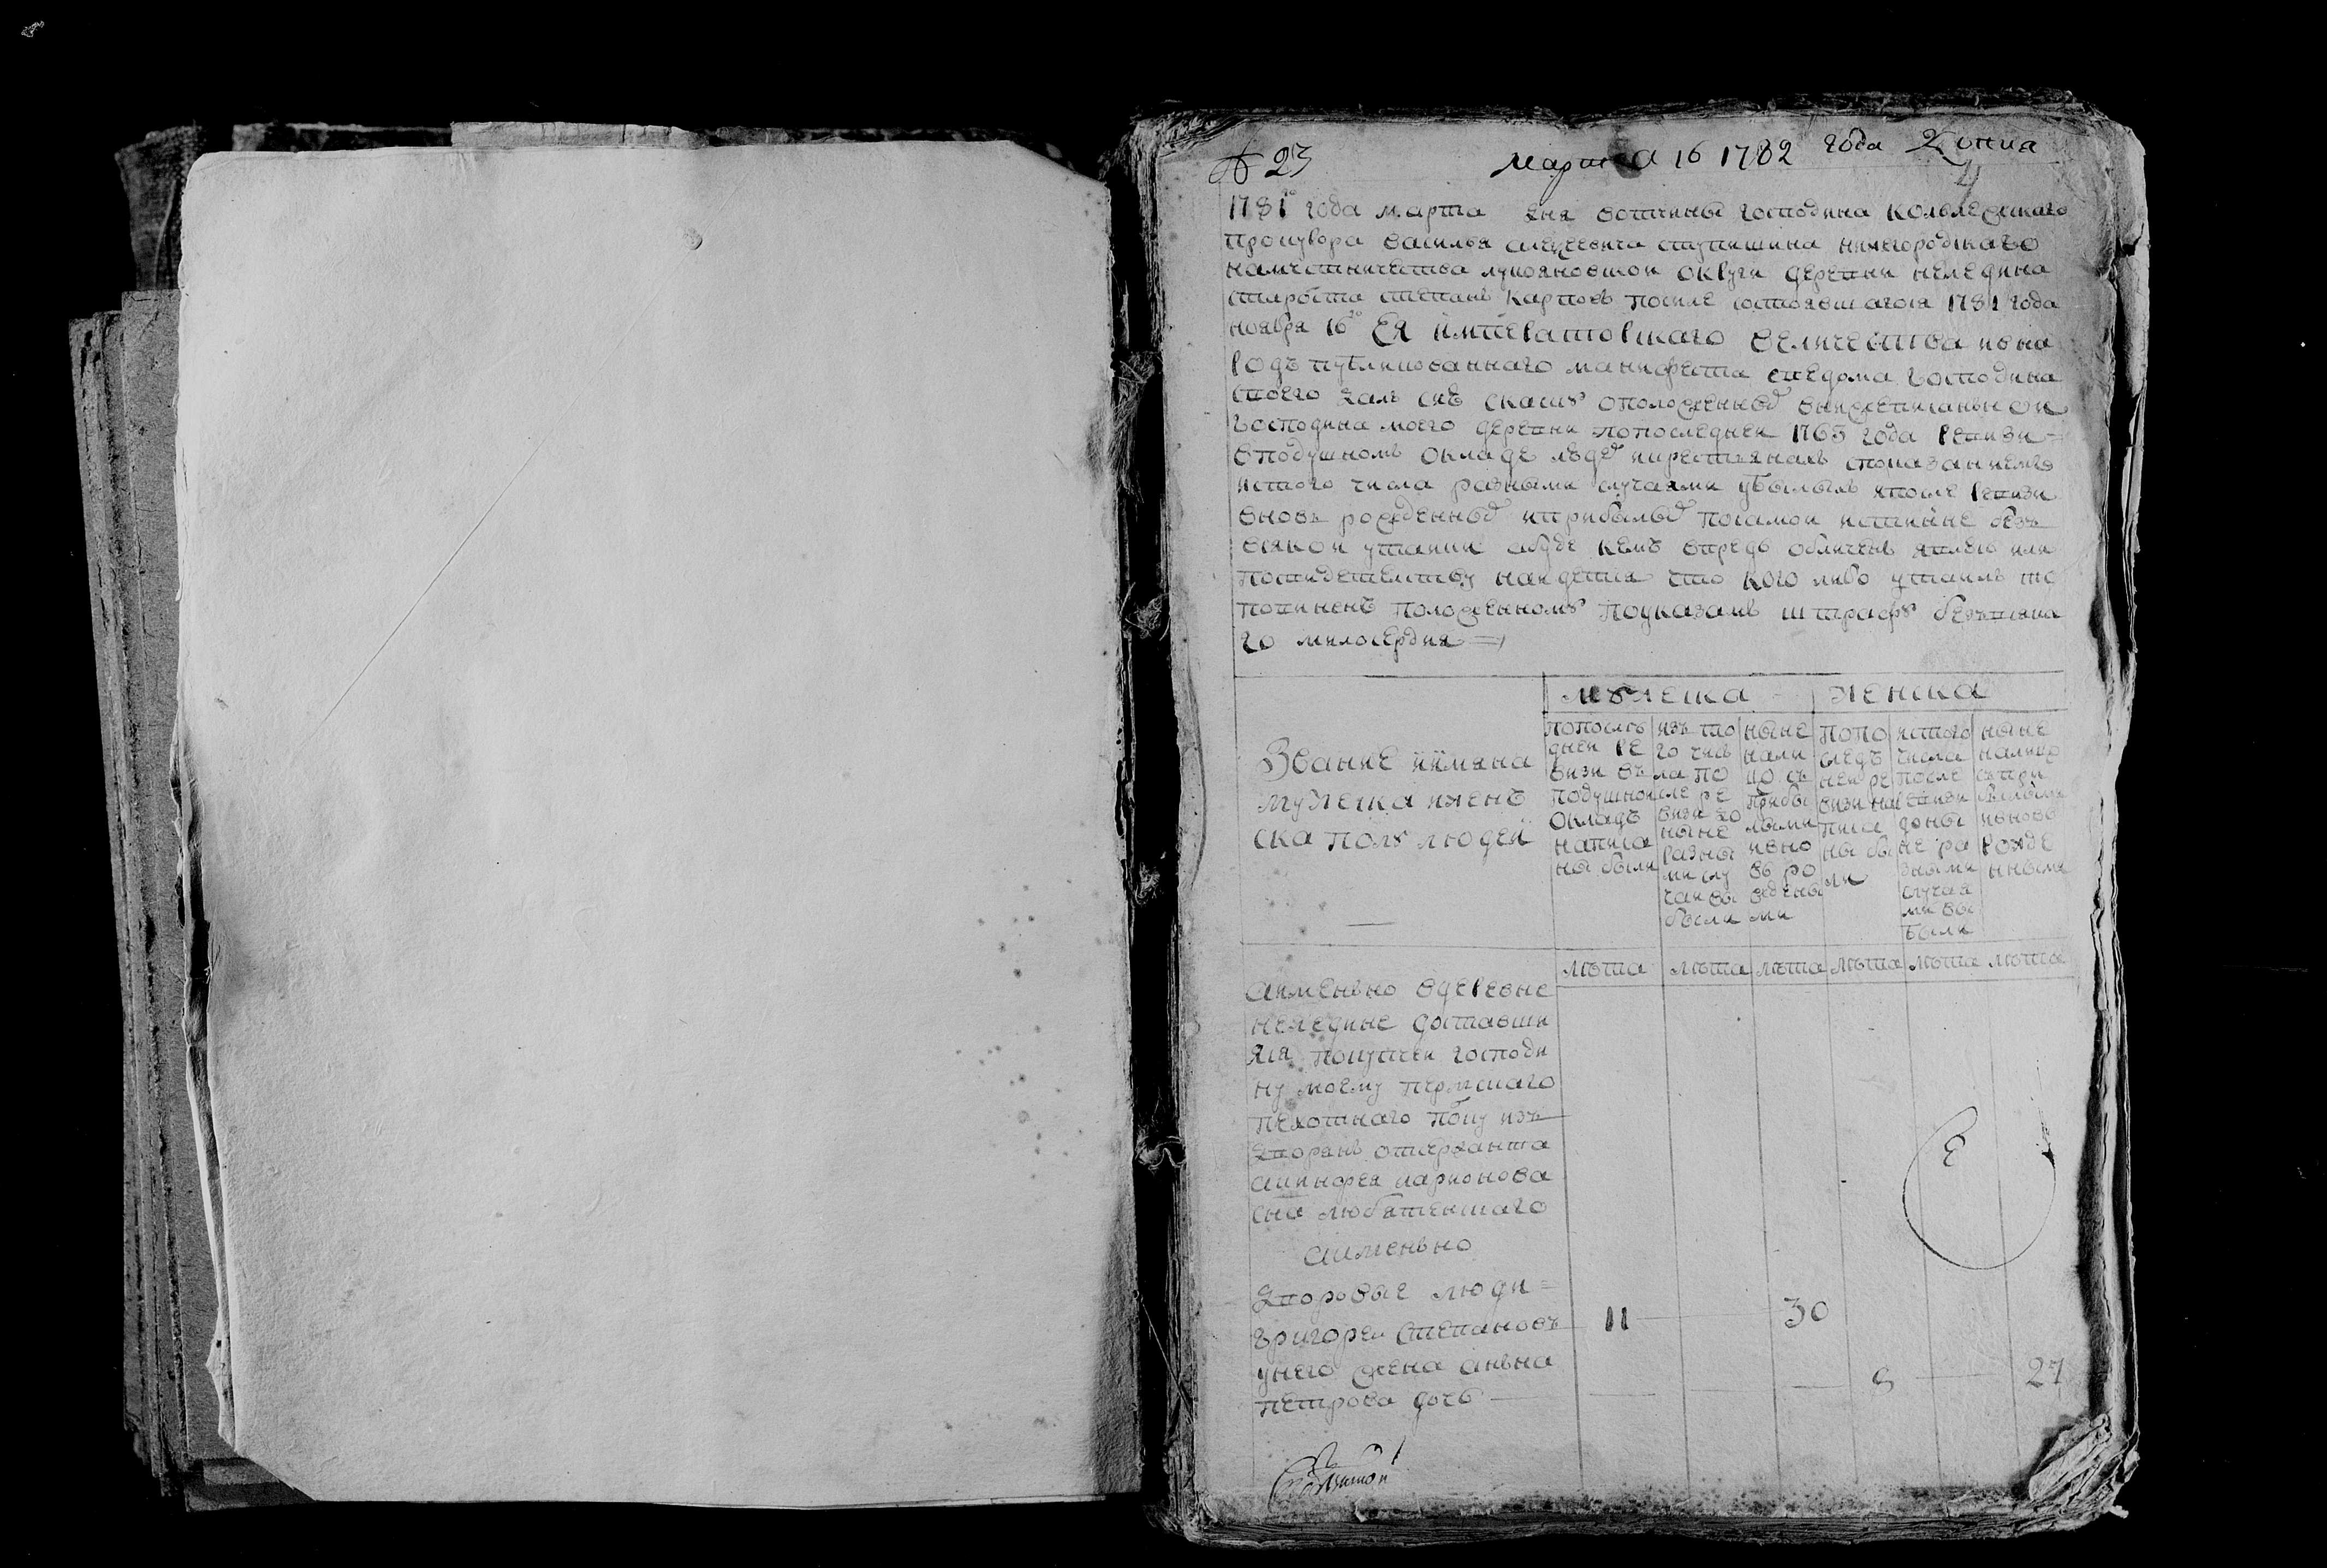 № 23
марта 16 1782 года Копиа
4
1782 года марта дня вотчины господина колележскаго
процувора василья алеѯеевича ступишина нижегородскаго
намѣстничества лукояновской округи деревни неледина
староста степанъ карповъ после состоявшагося 1781 года
ноября 16го Ея императорскаго величества и в на
родъ публикованнаго манифеста сведома господина
своего далъ сию скаску оположенныхъ вышеписанной
господина моего деревни попоследней 1763 года ревизи
вподушномъ окладе людехъ икрестьянахъ споказаниемъ
истого числа разными случаями убылыхъ ипосле ревизи
вновь рожденныхъ иприбылыхъ посамой истинне безъ
всякой утайки абуде кемъ впредь обличенъ явлюсь или
посвидетельству найдетца что кого либо утаилъ то
повиненъ положенному поуказамъ штрафу безвсяка
го милосердия
мужеска женска
Звание иимяна
мужеска иженъ
ска полу людей
попосле
дней ре
визи въ
подушном
окладе
написа
ны были
изъ то
го чис
ла по
сле ре
визи до
ныне
разны
ми слу
чаи вы
были
ныне
нали
цо съ
прибы
лыми
ивно
вь ро
жденны
ми
попо
следъ
ней ре
визи на
писа
ны бы
ли
истого
числа
после
ревизи
доны
не ра
зными
случая
ми вы
были
ныне
налицо
съпри
былыми
ивновь
рожде
нными
лѣта лѣта лѣта лѣта лѣта лѣта
аименьно вдеревне
нелединe доставши
яся покупчей господи
ну моему пермскаго
пехотнаго полку изъ
дворянъ отсержанта
акинфея ларионова
сна любятенскаго
аименьно
Дворовые люди
григорей степановъ 11 30
унего жена аньна
петрова дочь 8 27